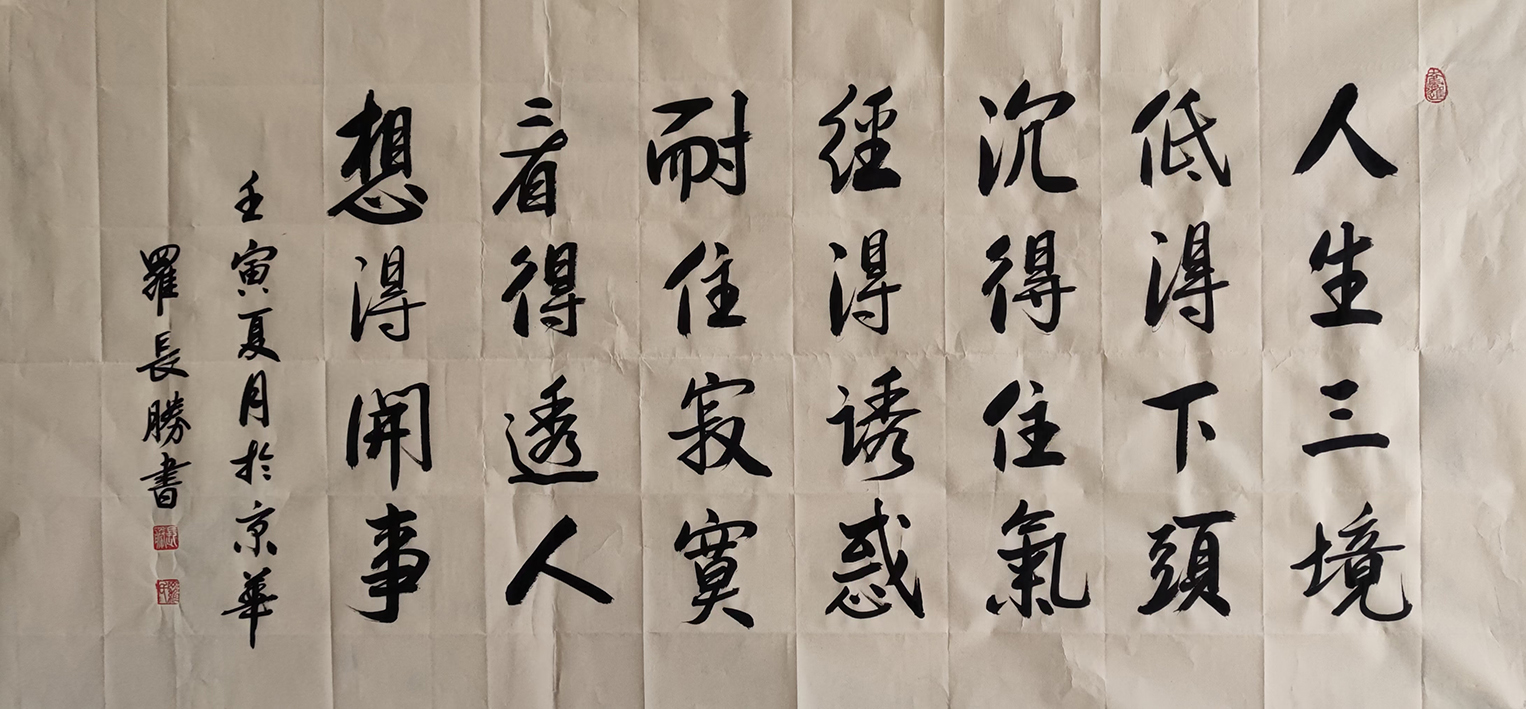 人生三境
低得下頭
沉得住氣
經得誘惑
耐住寂寞
看得透人
想得開事
壬寅夏月於京華
羅長勝書